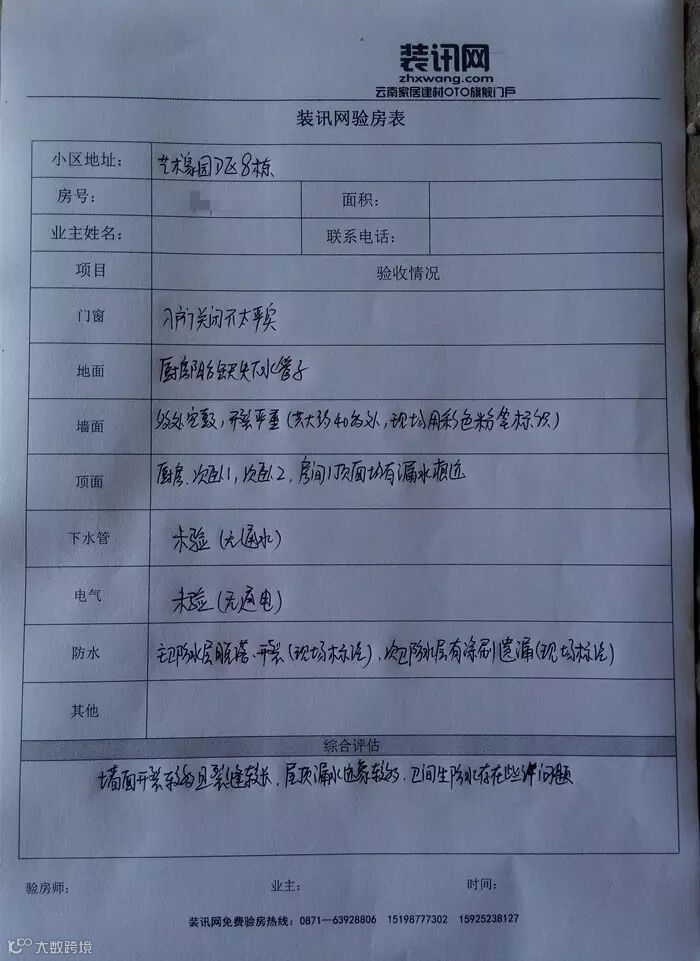 装讯网
zhxwang.com
云南家居建材OTO旗舰门户
装讯网验房表
小区地址: 艺术家园D区8栋
房号: 面积:
业主姓名: 联系电话:
项目 验收情况
门窗 入户门关闭不太严实
地面 厨房阳台缺失下水管子
墙面 多处空鼓,开裂严重(共大约40多处,现场用彩色粉笔标识)
顶面 厨房、次卧1,次卧2,房间顶面均有漏水痕迹
下水管 未验(无通水)
电气 未验(无通电)
防水 主卫防水层脱落、开裂(现场标注)、次卫防水层有涂刷遗漏(现场标注)
其他
综合评估
墙面开裂较多且裂缝较长,屋顶漏水迹象较多,卫生间防水存在些许问题
验房师: 业主: 时间:
装讯网免费验房热线:0871—63928806 15198777302 15925238127
大数跨境